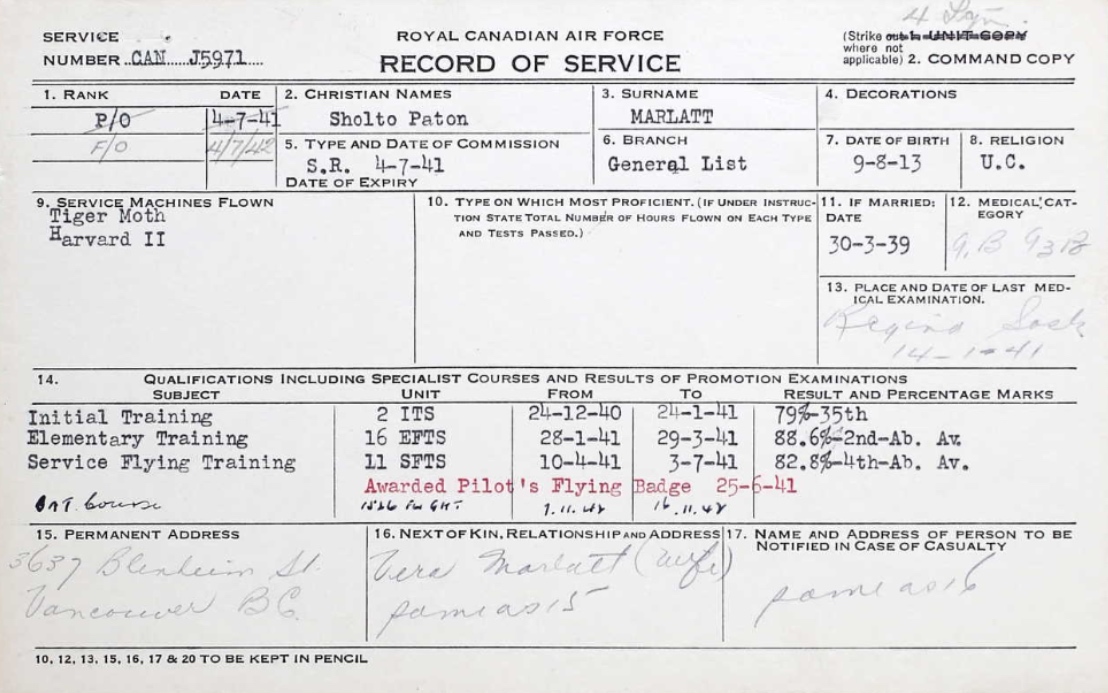 4 Sqn.
SERVICE
NUMBER CAN J5971
ROYAL CANADIAN AIR FORCE
RECORD OF SERVICE
(Strike out 1. UNIT COPY
where not
applicable) 2. COMMAND COPY
1. RANK DATE
P/O 4-7-41
F/O 4/7/42
2. CHRISTIAN NAMES
Sholto Paton
3. SURNAME
MARLATT
4. DECORATIONS
5. TYPE AND DATE OF COMMISSION
S.R. 4-7-41
DATE OF EXPIRY
6. BRANCH
General List
7. DATE OF BIRTH
9-8-13
8. RELIGION
U.C.
9. SERVICE MACHINES FLOWN
Tiger Moth
Harvard II
10. TYPE ON WHICH MOST PROFICIENT. (IF UNDER INSTRUC-
TION STATE TOTAL NUMBER OF HOURS FLOWN ON EACH TYPE
AND TESTS PASSED.)
11. IF MARRIED:
DATE
30-3-39
12. MEDICAL CAT-
EGORY
A.B A3B
13. PLACE AND DATE OF LAST MED-
ICAL EXAMINATION.
Regina Sask
14-1-41
14. QUALIFICATIONS INCLUDING SPECIALIST COURSES AND RESULTS OF PROMOTION EXAMINATIONS
SUBJECT UNIT FROM TO RESULT AND PERCENTAGE MARKS
Initial Training 2 ITS 24-12-40 24-1-41 79%-35th
Elementary Training 16 EFTS 28-1-41 29-3-41 88.6%-2nd-Ab. Av.
Service Flying Training 11 SFTS 10-4-41 3-7-41 82.8%-4th-Ab. Av.
Awarded Pilot's Flying Badge 25-6-41
BAT. Course 7.11.42 16.11.42
15. PERMANENT ADDRESS
3637 Blenheim St.
Vancouver B.C.
16. NEXT OF KIN, RELATIONSHIP AND ADDRESS
Vera Marlatt (wife)
same as 15
17. NAME AND ADDRESS OF PERSON TO BE
NOTIFIED IN CASE OF CASUALTY
same as 16
10, 12, 13, 15, 16, 17 & 20 TO BE KEPT IN PENCIL